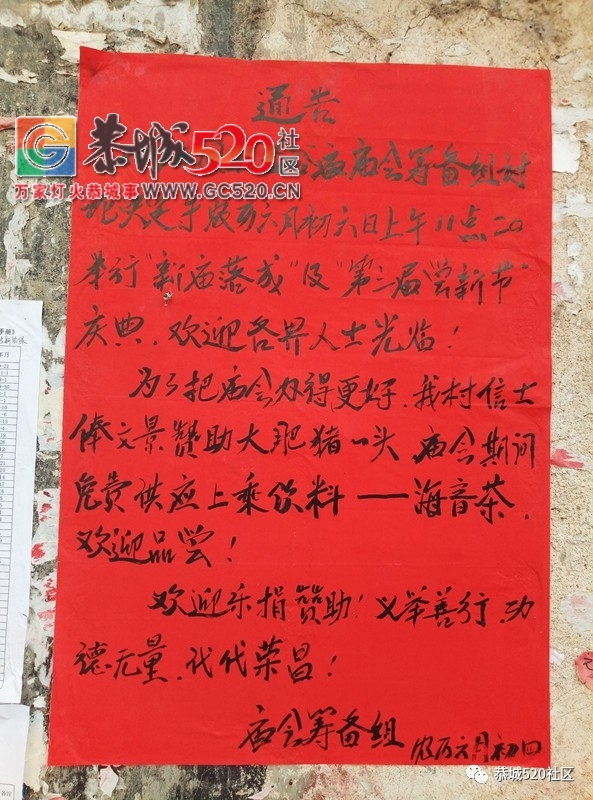 通告
恭城520社区
万家灯火恭城事 WWW.GC520.CN
庙会筹备组讨
六月初六日上午11点20
举行"新庙落成"及"第三届尝新节"
庆典,欢迎各界人士光临!
为了把庙会办得更好,我村信士
俸文景赞助大肥猪一头,庙会期间
免费供应上乘饮料——海音茶,
欢迎品尝!
欢迎乐捐赞助!义举善行,功
德无量,代代荣昌!
庙会筹备组 农历六月初四
恭城520社区